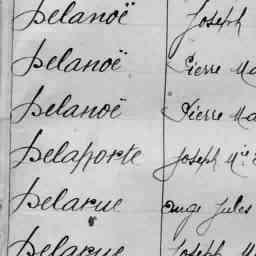 Delanoë Joseph
Delanoë Pierre Ma
Delanoë Pierre Ma
Delaporte Joseph Mie
Delarue Ange Jules
Delarue Joseph M